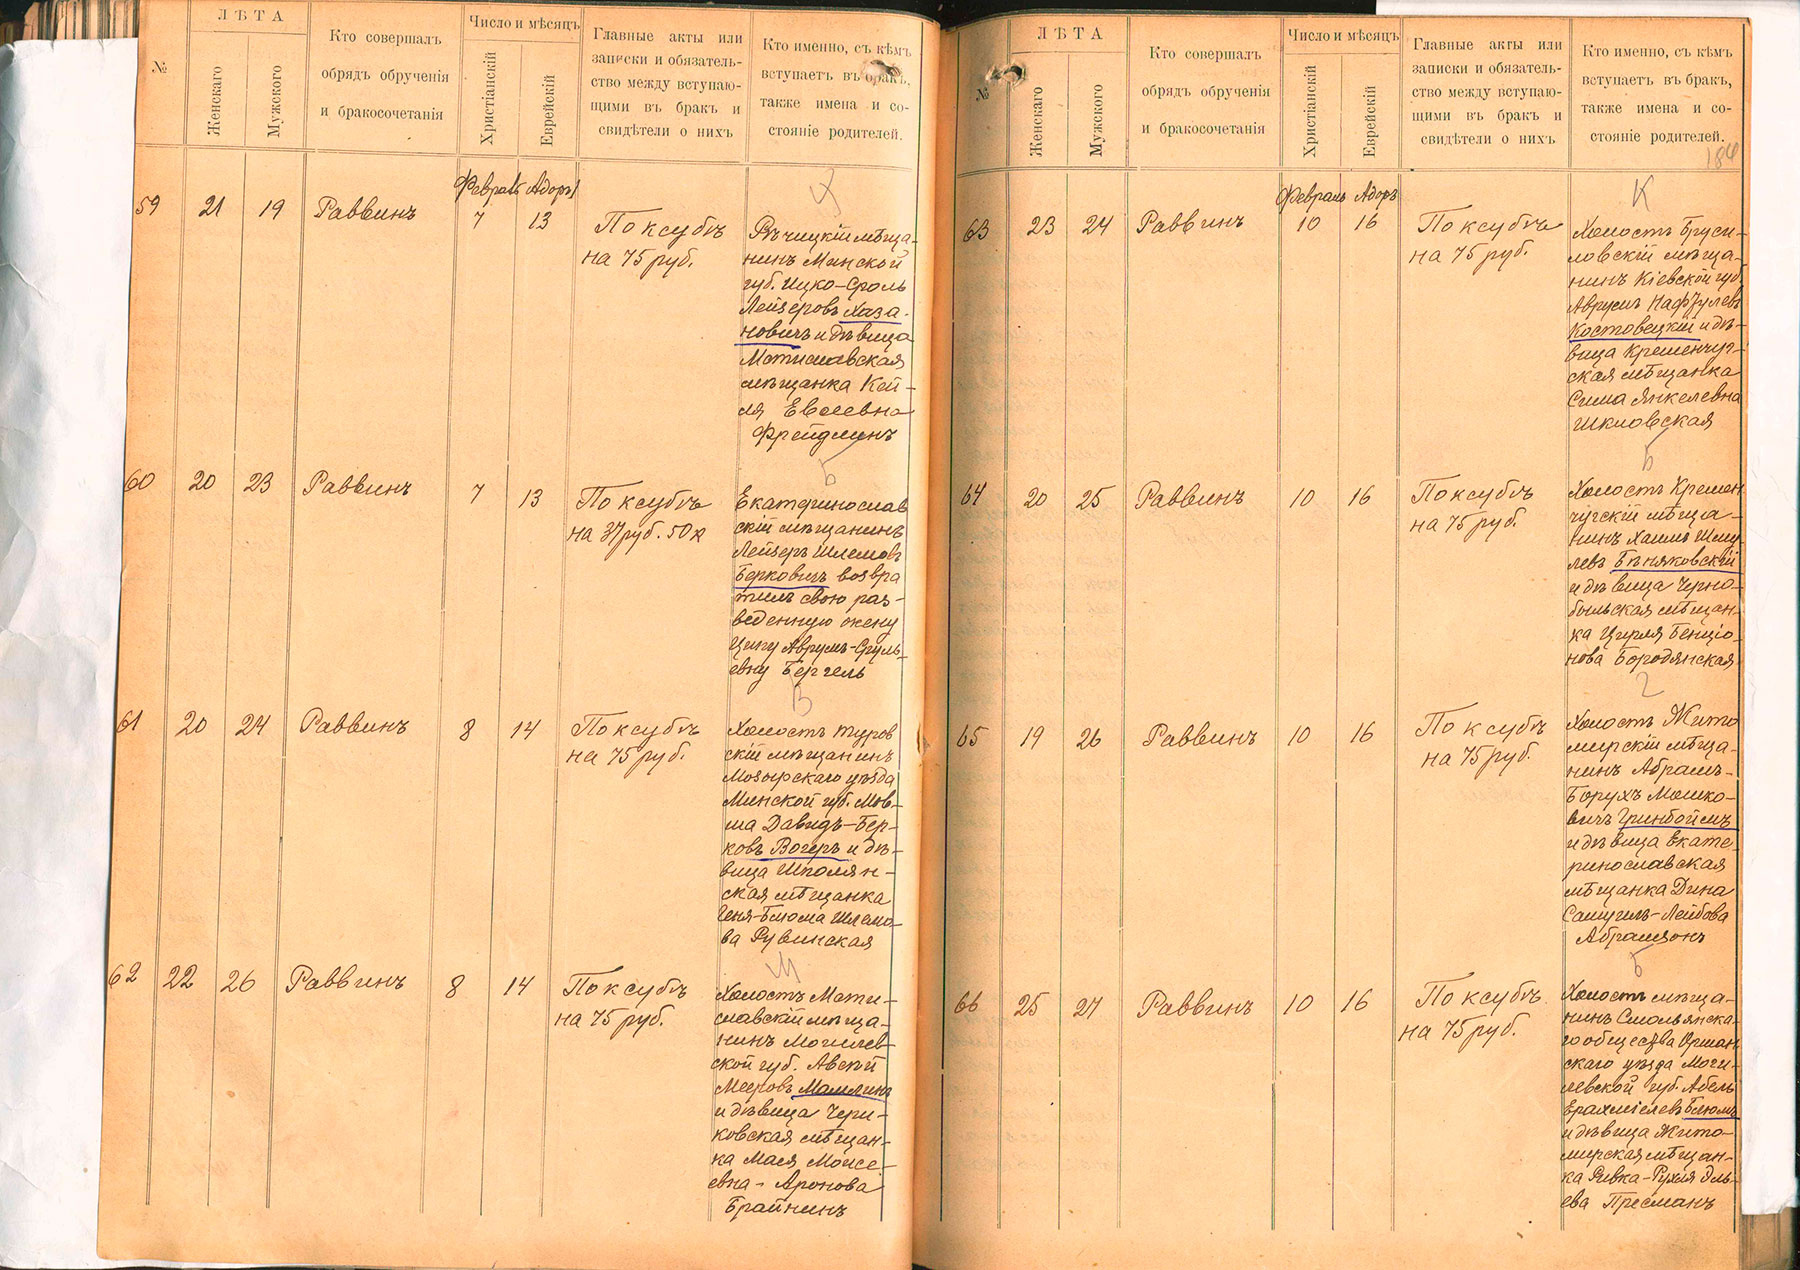 №
ЛѢТА
Женскаго
Мужского
Кто совершалъ
обрядъ обрученія
и бракосочетанія
Число и мѣсяцъ
Христіанскій
Еврейскій
Главные акты или
записки и обязатель-
ство между вступаю-
щими въ бракъ и
свидѣтели о нихъ
Кто именно, съ кѣмъ
вступаетъ въ бракъ,
также имена и со-
стояніе родителей.
Февраль Адоръ
Х
59 21 19 Раввинъ 7 13 По ксубѣ
на 75 руб.
Рѣчицкій мѣща-
нинъ Минской
губ. Ицко-Сроль
Лейзеровъ Хаза-
новичъ и дѣвица
Мстиславская
мѣщанка Кей-
ля Евсеевна
Фрейдлинъ
Б
60 20 23 Раввинъ 7 13 По ксубѣ
на 37 руб. 50 к
Екатеринослав
скій мѣщанинъ
Лейзеръ Шлемовъ
Берковичъ возвра
тилъ свою раз-
веденную жену
Ципу Аврумъ-Сруль-
евну Бергель
В
61 20 24 Раввинъ 8 14 По ксубѣ
на 75 руб.
Холостъ Туров
скій мѣщанинъ
Мозырскаго уѣзда
Минской губ. Мов-
ша Давидъ-Бер-
ковъ Вогеръ и дѣ-
вица Шполян-
ская мѣщанка
Геня-Блюма Шлемо-
ва Рувинская
М
62 22 26 Раввинъ 8 14 По ксубѣ
на 75 руб.
Холостъ Мсти-
славскій мѣща-
нинъ Могилев-
ской губ. Авсей
Мееровъ Малкинъ
и дѣвица Чери-
ковская мѣщан-
ка Мася Моисе-
евна-Аронова
Брайнинъ
№
ЛѢТА
Женскаго
Мужского
Кто совершалъ
обрядъ обрученія
и бракосочетанія
Число и мѣсяцъ
Христіанскій
Еврейскій
Главные акты или
записки и обязатель-
ство между вступаю-
щими въ бракъ и
свидѣтели о нихъ
Кто именно, съ кѣмъ
вступаетъ въ бракъ,
также имена и со-
стояніе родителей.
Февраль Адоръ
К
63 23 24 Раввинъ 10 16 По ксубѣ
на 75 руб.
Холостъ Бруси-
ловскій мѣща-
нинъ Кіевской губ.
Аврумъ Нафтулевъ
Костовецкій и дѣ-
вица Кременчуг-
ская мѣщанка
Сима Янкелевна
Шкловская
Б
64 20 25 Раввинъ 10 16 По ксубѣ
на 75 руб.
Холостъ Кремен
чугскій мѣща-
нинъ Хаимъ Шму
левъ Бѣняковскій
и дѣвица Черно-
быльская мѣщан-
ка Цирля Бенціо-
нова Бородянская
Г
65 19 26 Раввинъ 10 16 По ксубѣ
на 75 руб.
Холостъ Жито
мирскій мѣща-
нинъ Абрамъ-
Борухъ Мошко-
вичъ Гринбоймъ
и дѣвица Екате-
ринославская
мѣщанка Дина
Самуилъ-Лейбова
Абрамзонъ
Б
66 25 27 Раввинъ 10 16 По ксубѣ
на 75 руб.
Холостъ мѣща-
нинъ Смольянска-
го общества Оршан
скаго уѣзда Моги-
левской губ. Абель
Ерахміелевъ Блюмъ
и дѣвица Жито-
мирская мѣщан-
ка Ривка-Рухля Эль-
ева Пресманъ